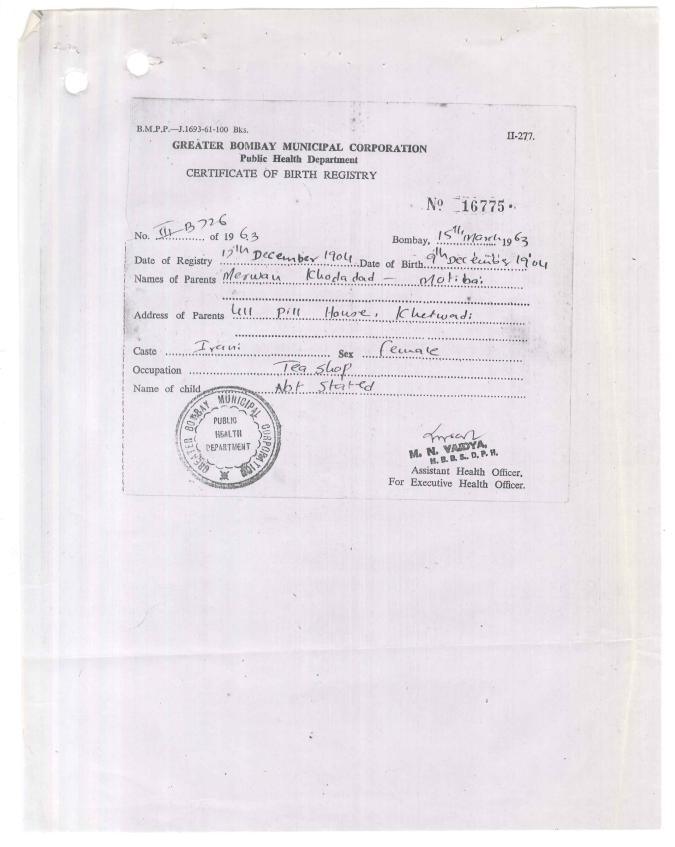 B.M.P.P.—J.1693-61-100 Bks.
II-277.
GREATER BOMBAY MUNICIPAL CORPORATION
Public Health Department
CERTIFICATE OF BIRTH REGISTRY
No 16775
No. III B 726 of 1963 Bombay, 15th March 1963
Date of Registry 17th December 1904 Date of Birth 9th December 1904
Names of Parents Merwan Khodadad — Motibai
Address of Parents Pill House, Khetwadi
Caste Irani Sex female
Occupation Tea shop
Name of child Not Stated
GREATER BOMBAY MUNICIPAL CORPORATION
PUBLIC
HEALTH
DEPARTMENT
M. N. VAIDYA,
M. B. B. S., D. P. H.
Assistant Health Officer,
For Executive Health Officer.